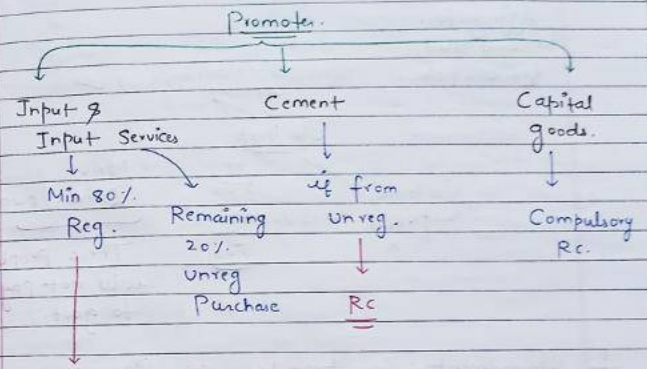 Promoter.
Input &
Input Services
Min 80%.
Reg.
Remaining
20%.
unreg
Purchase
Cement
if from
unreg.
Rc
Capital
goods.
Compulsory
Rc.